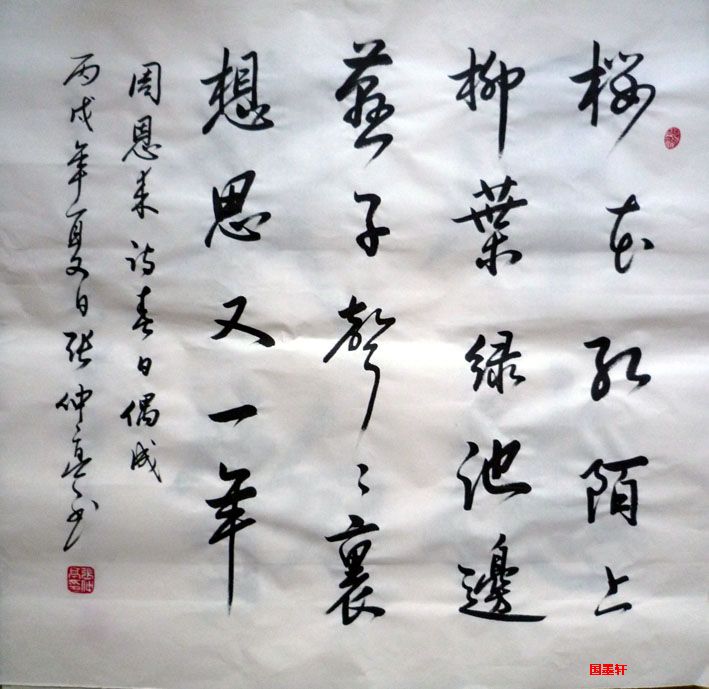 樱花红陌上
柳葉绿池邊
燕子聲々裏
想思又一年
周恩来诗春日偶成
丙戌年夏日张仲亭书
国墨轩